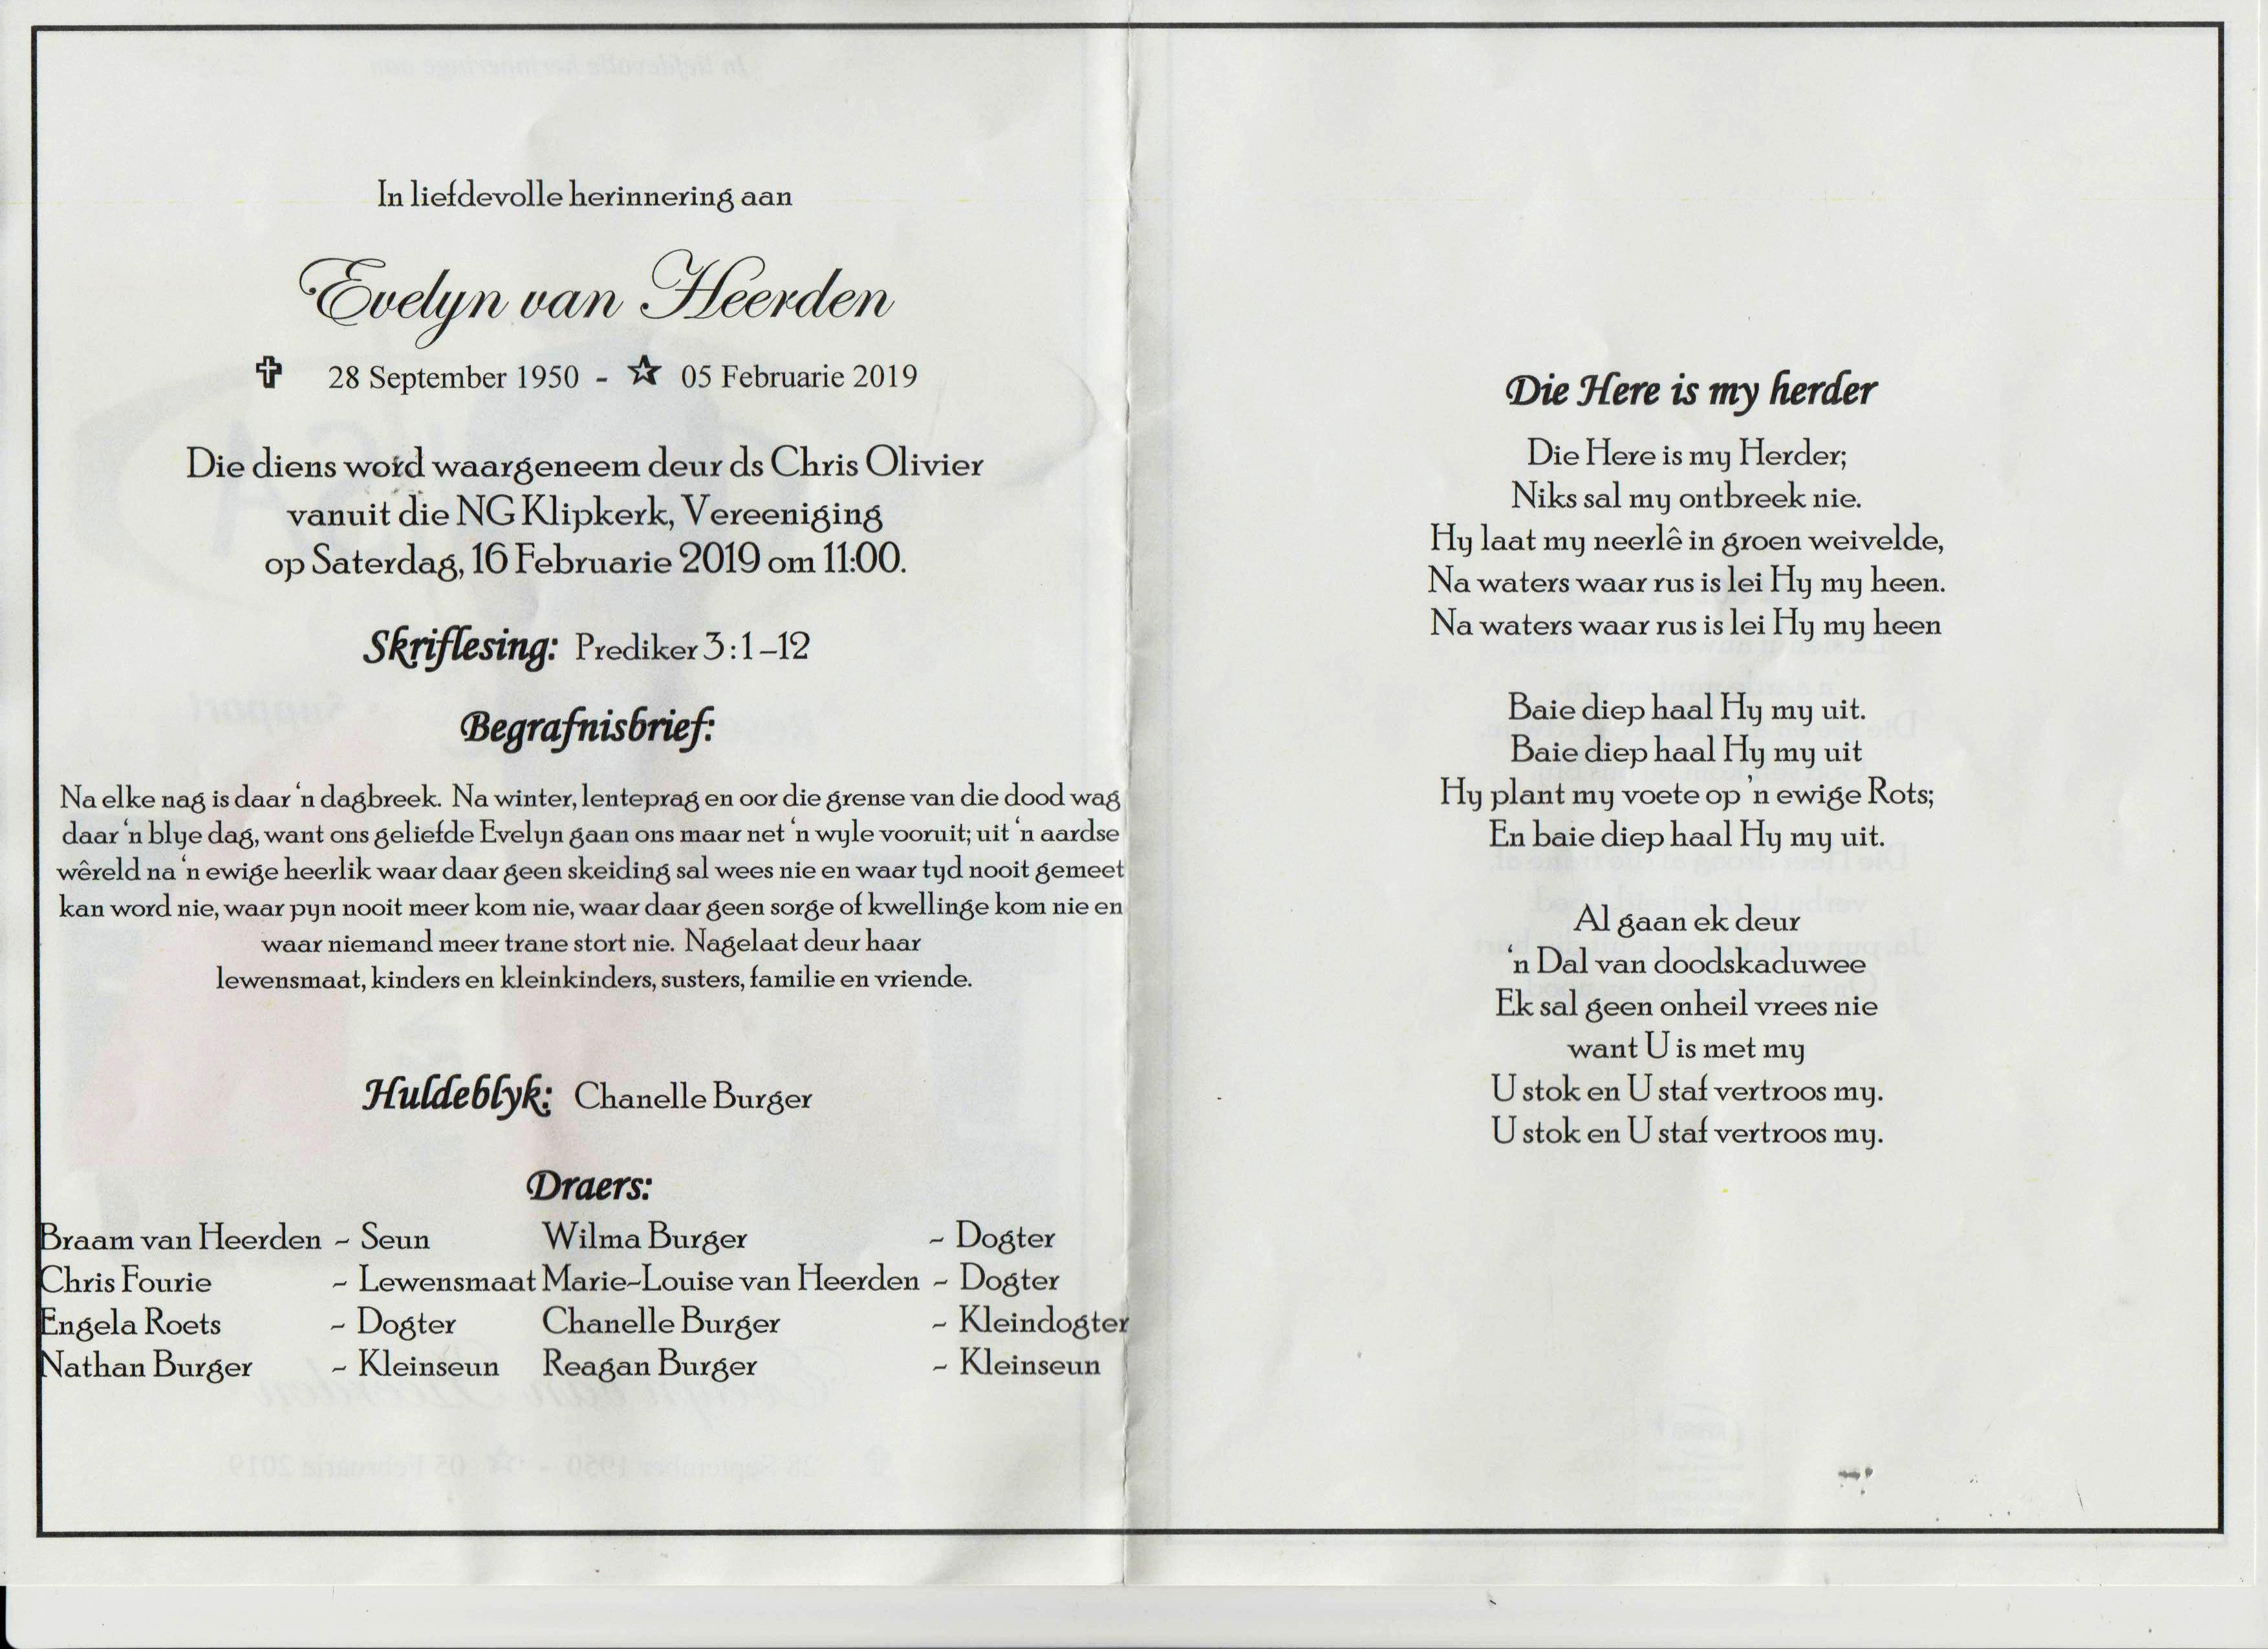 In liefdevolle herinnering aan
Evelyn van Heerden
✞ 28 September 1950 - ☆ 05 Februarie 2019
Die diens word waargeneem deur ds Chris Olivier
vanuit die NG Klipkerk, Vereeniging
op Saterdag, 16 Februarie 2019 om 11:00.
Skriflesing: Prediker 3:1-12
Begrafnisbrief:
Na elke nag is daar 'n dagbreek. Na winter, lenteprag en oor die grense van die dood wag
daar 'n blye dag, want ons geliefde Evelyn gaan ons maar net 'n wyle vooruit; uit 'n aardse
wêreld na 'n ewige heerlik waar daar geen skeiding sal wees nie en waar tyd nooit gemeet
kan word nie, waar pyn nooit meer kom nie, waar daar geen sorge of kwellinge kom nie en
waar niemand meer trane stort nie. Nagelaat deur haar
lewensmaat, kinders en kleinkinders, susters, familie en vriende.
Huldeblyk: Chanelle Burger
Draers:
Braam van Heerden ~ Seun Wilma Burger ~ Dogter
Chris Fourie ~ Lewensmaat Marie~Louise van Heerden ~ Dogter
Engela Roets ~ Dogter Chanelle Burger ~ Kleindogter
Nathan Burger ~ Kleinseun Reagan Burger ~ Kleinseun
Die Here is my herder
Die Here is my Herder;
Niks sal my ontbreek nie.
Hy laat my neerlê in groen weivelde,
Na waters waar rus is lei Hy my heen.
Na waters waar rus is lei Hy my heen
Baie diep haal Hy my uit.
Baie diep haal Hy my uit
Hy plant my voete op 'n ewige Rots;
En baie diep haal Hy my uit.
Al gaan ek deur
'n Dal van doodskaduwee
Ek sal geen onheil vrees nie
want U is met my
U stok en U staf vertroos my.
U stok en U staf vertroos my.